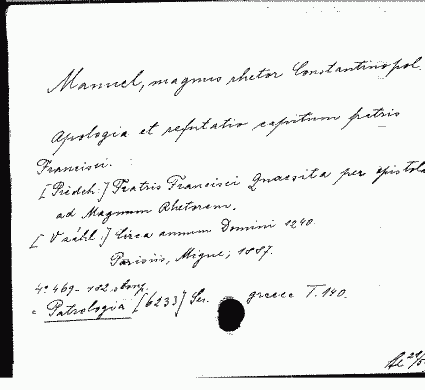 Manuel, magnus rhetor Constantinopol.
Apologia et refutatio capitum patris
Francisci.
[Předch:] Fratris Francisci Quaesita per epistola
ad Magnum Rhetorem.
[V záhl:] Circa annum Domini 1240.
Parisiis, Migne, 1887.
4° 469-482 sloup.
Patrologia [6233] Ser. graece T. 140.